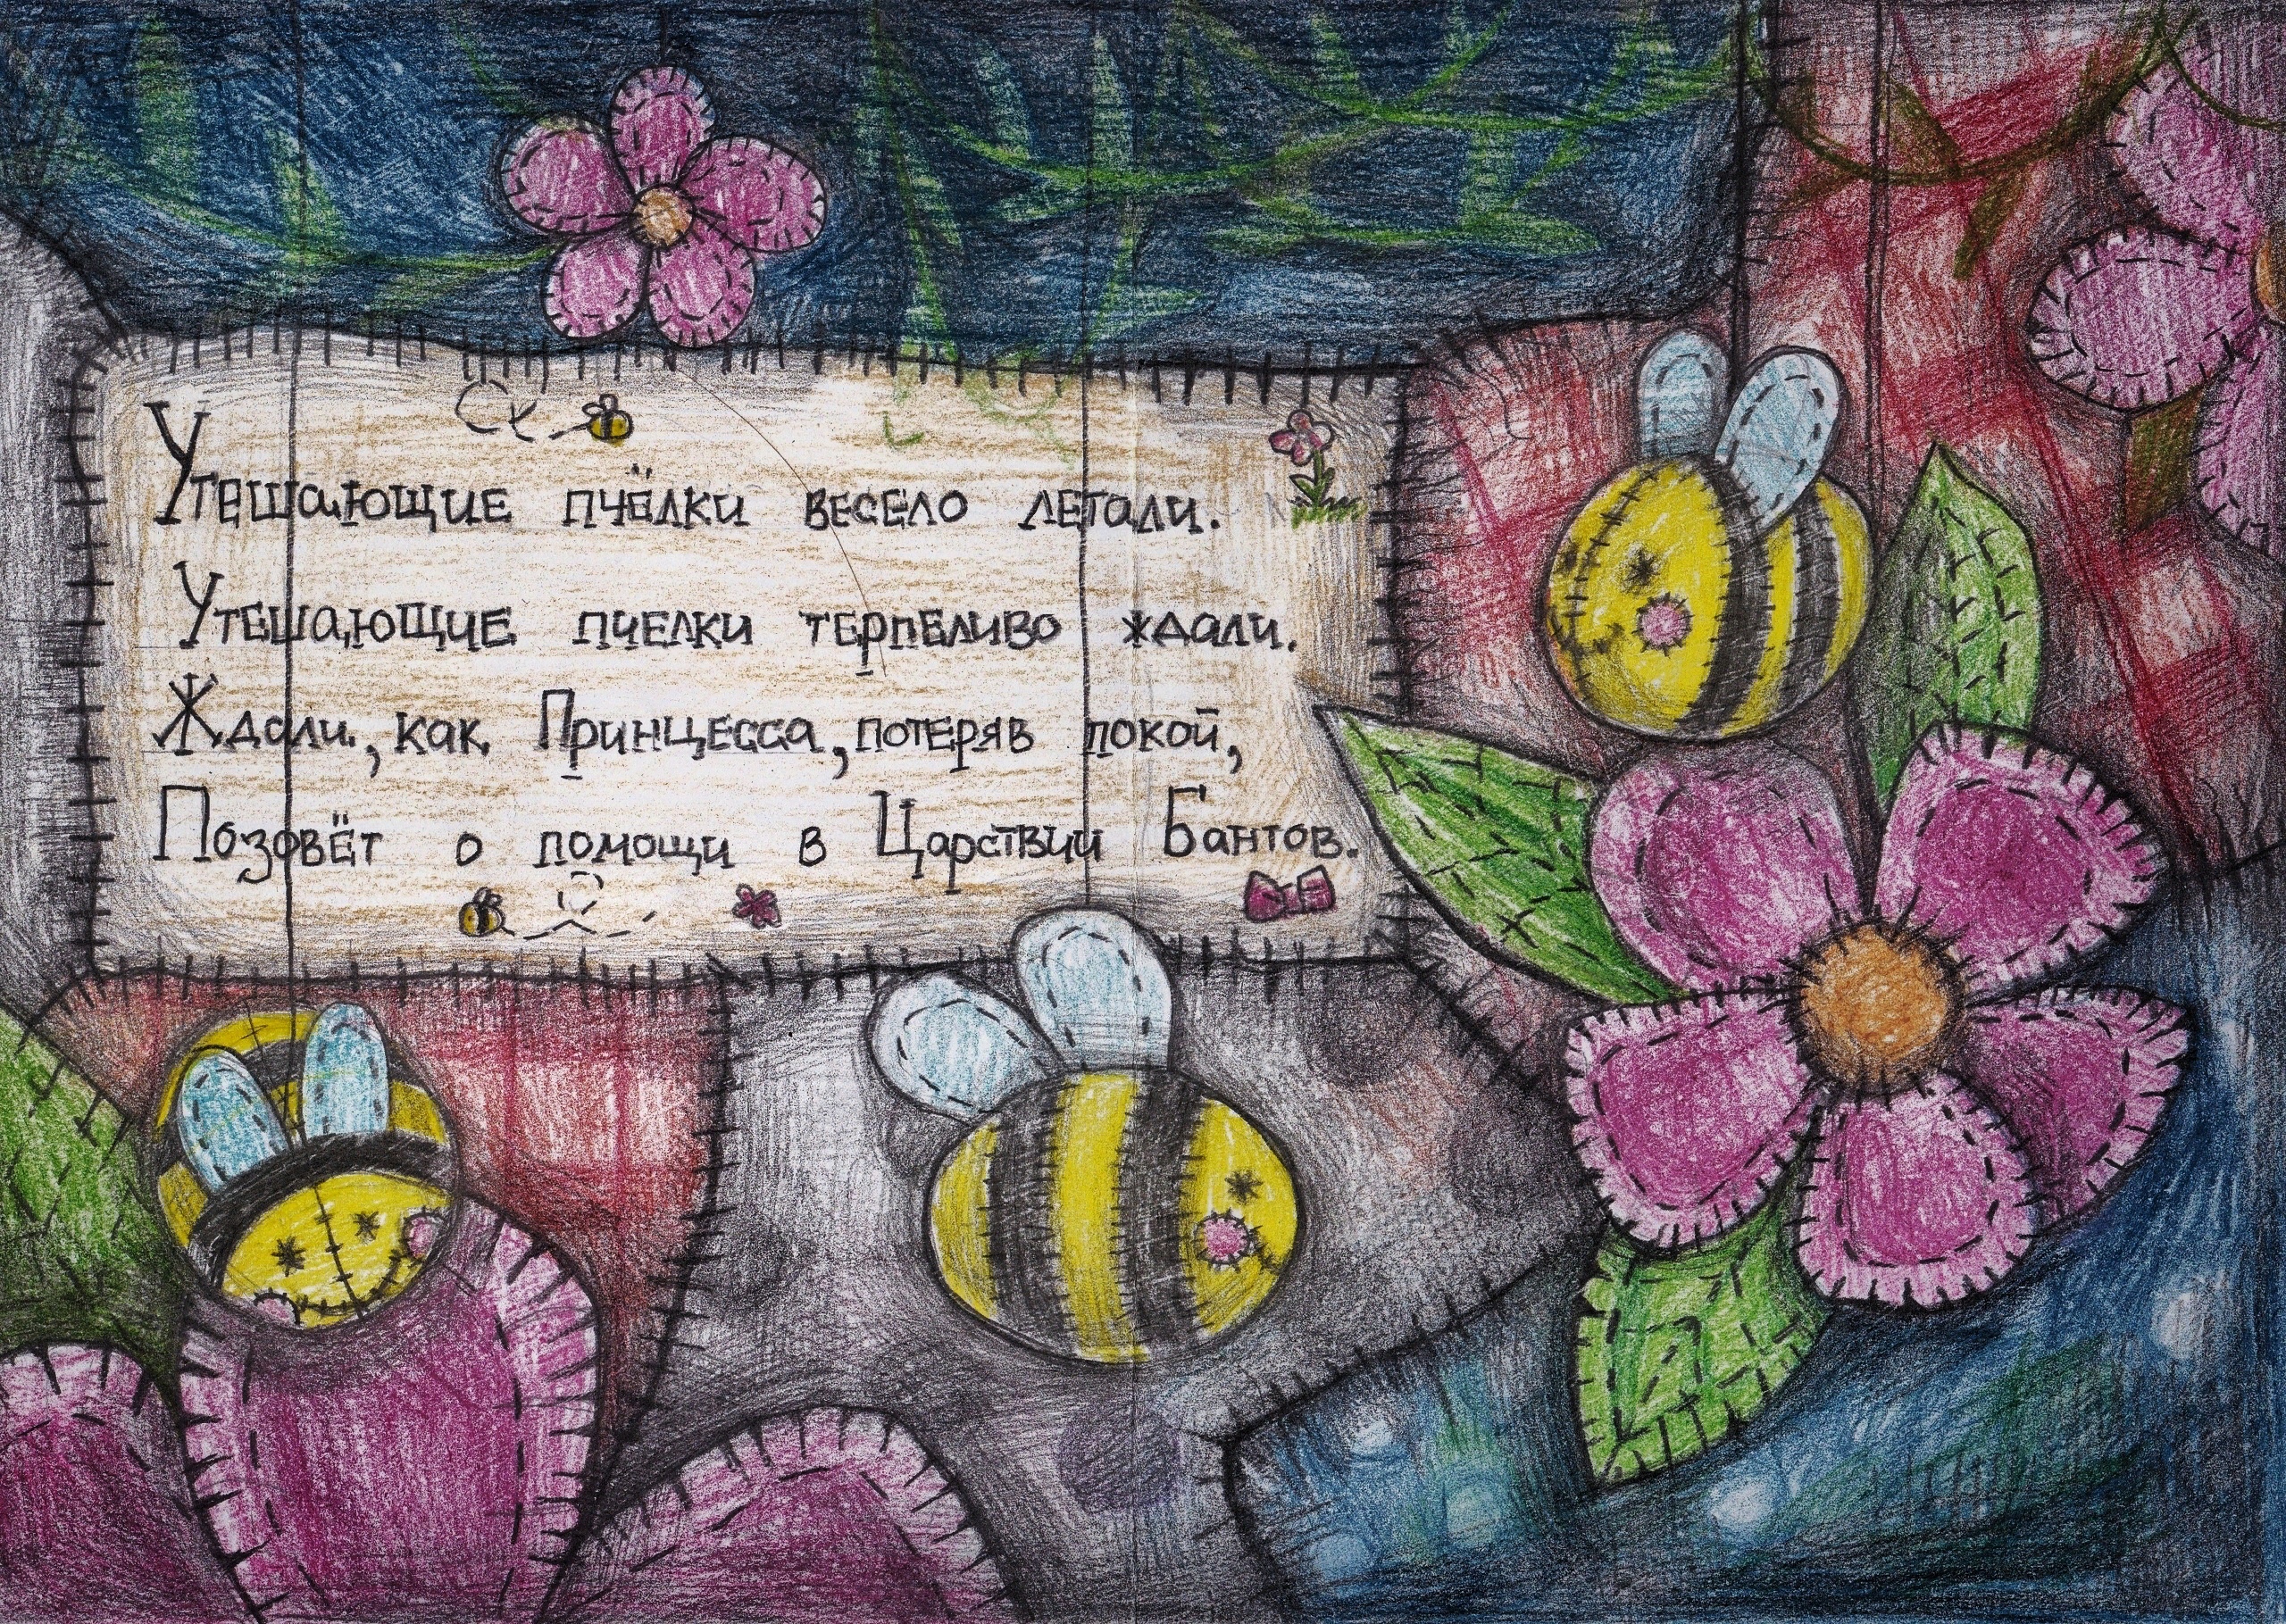 Утешающие пчёлки весело летали.
Утешающие пчелки терпеливо ждали.
Ждали, как Принцесса, потеряв покой,
Позовёт о помощи в Царствии Бантов.